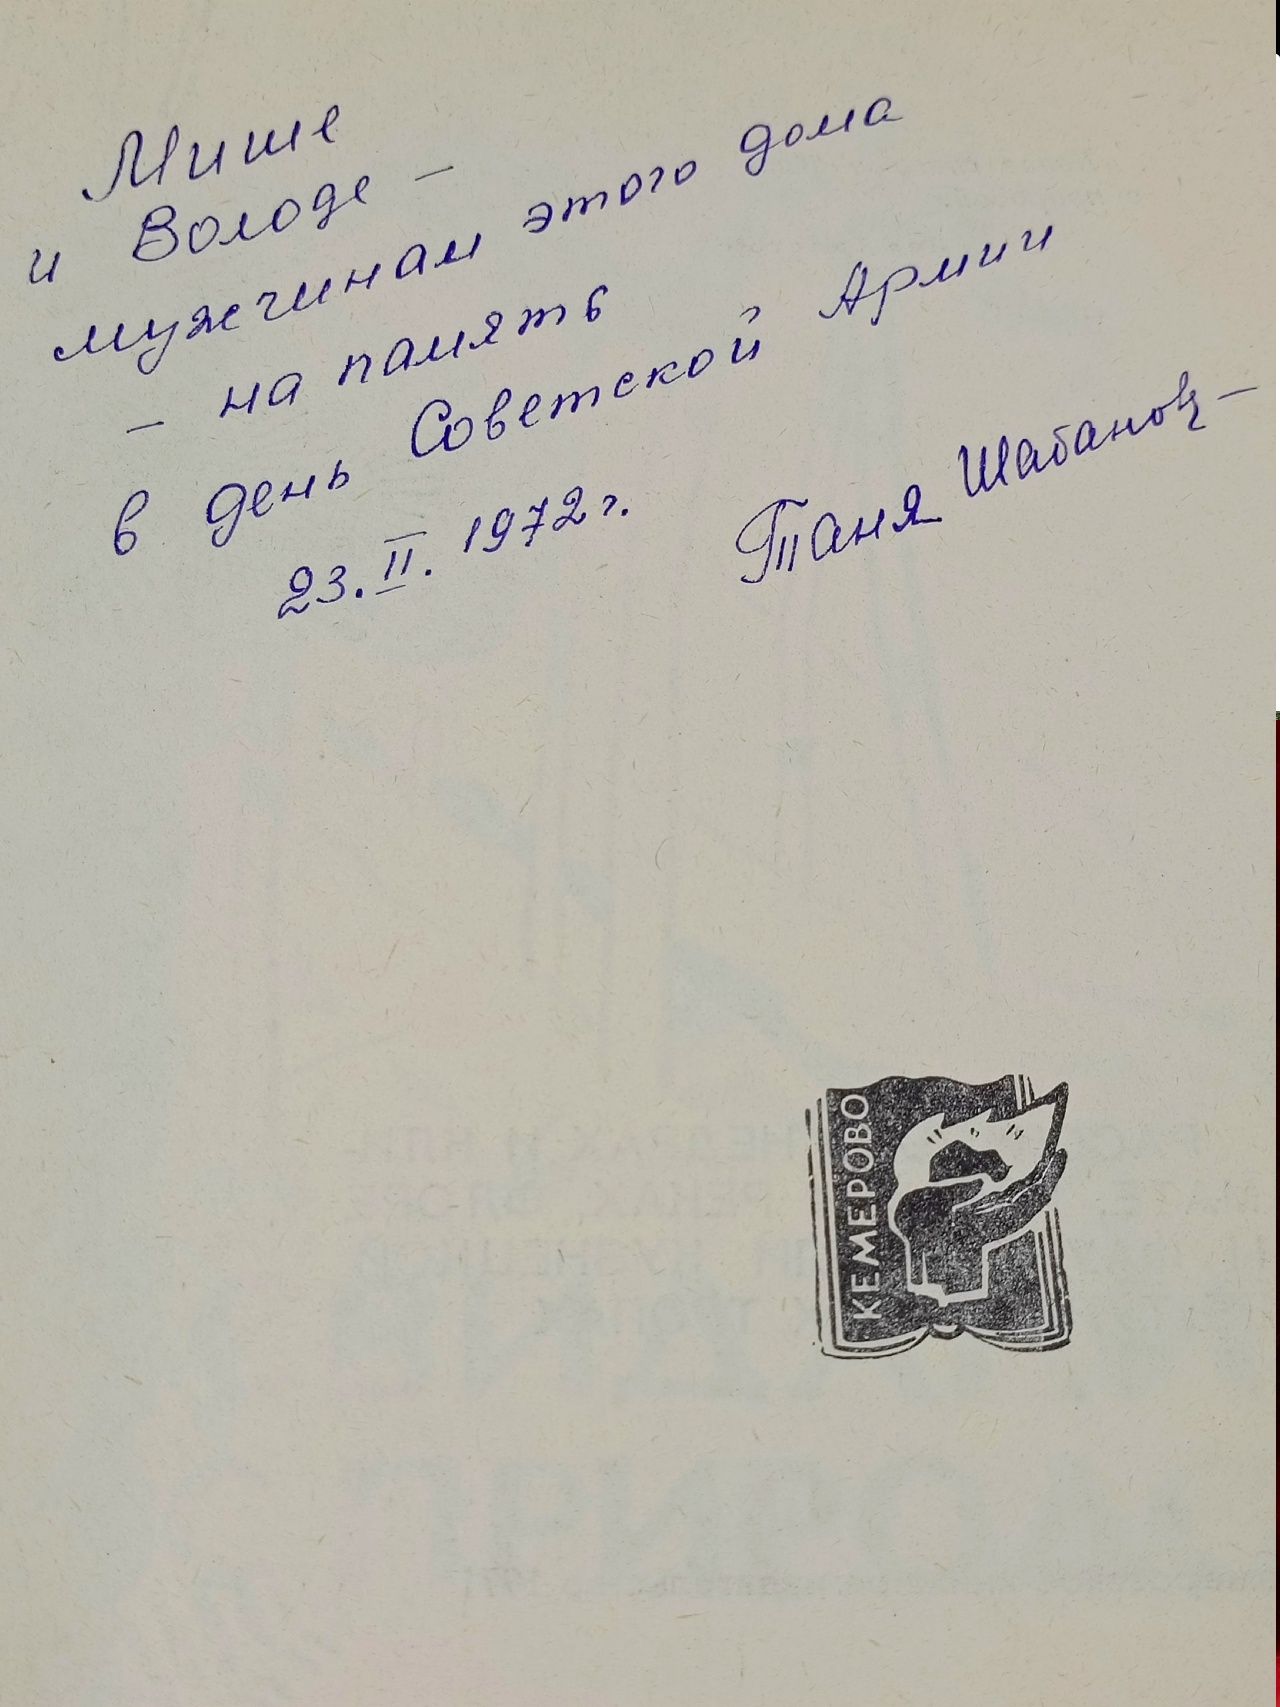 Мише
и Володе –
мужчинам этого дома
– на память
в день Советской Армии
23. II. 1972 г.
Таня Шабанов
КЕМЕРОВО